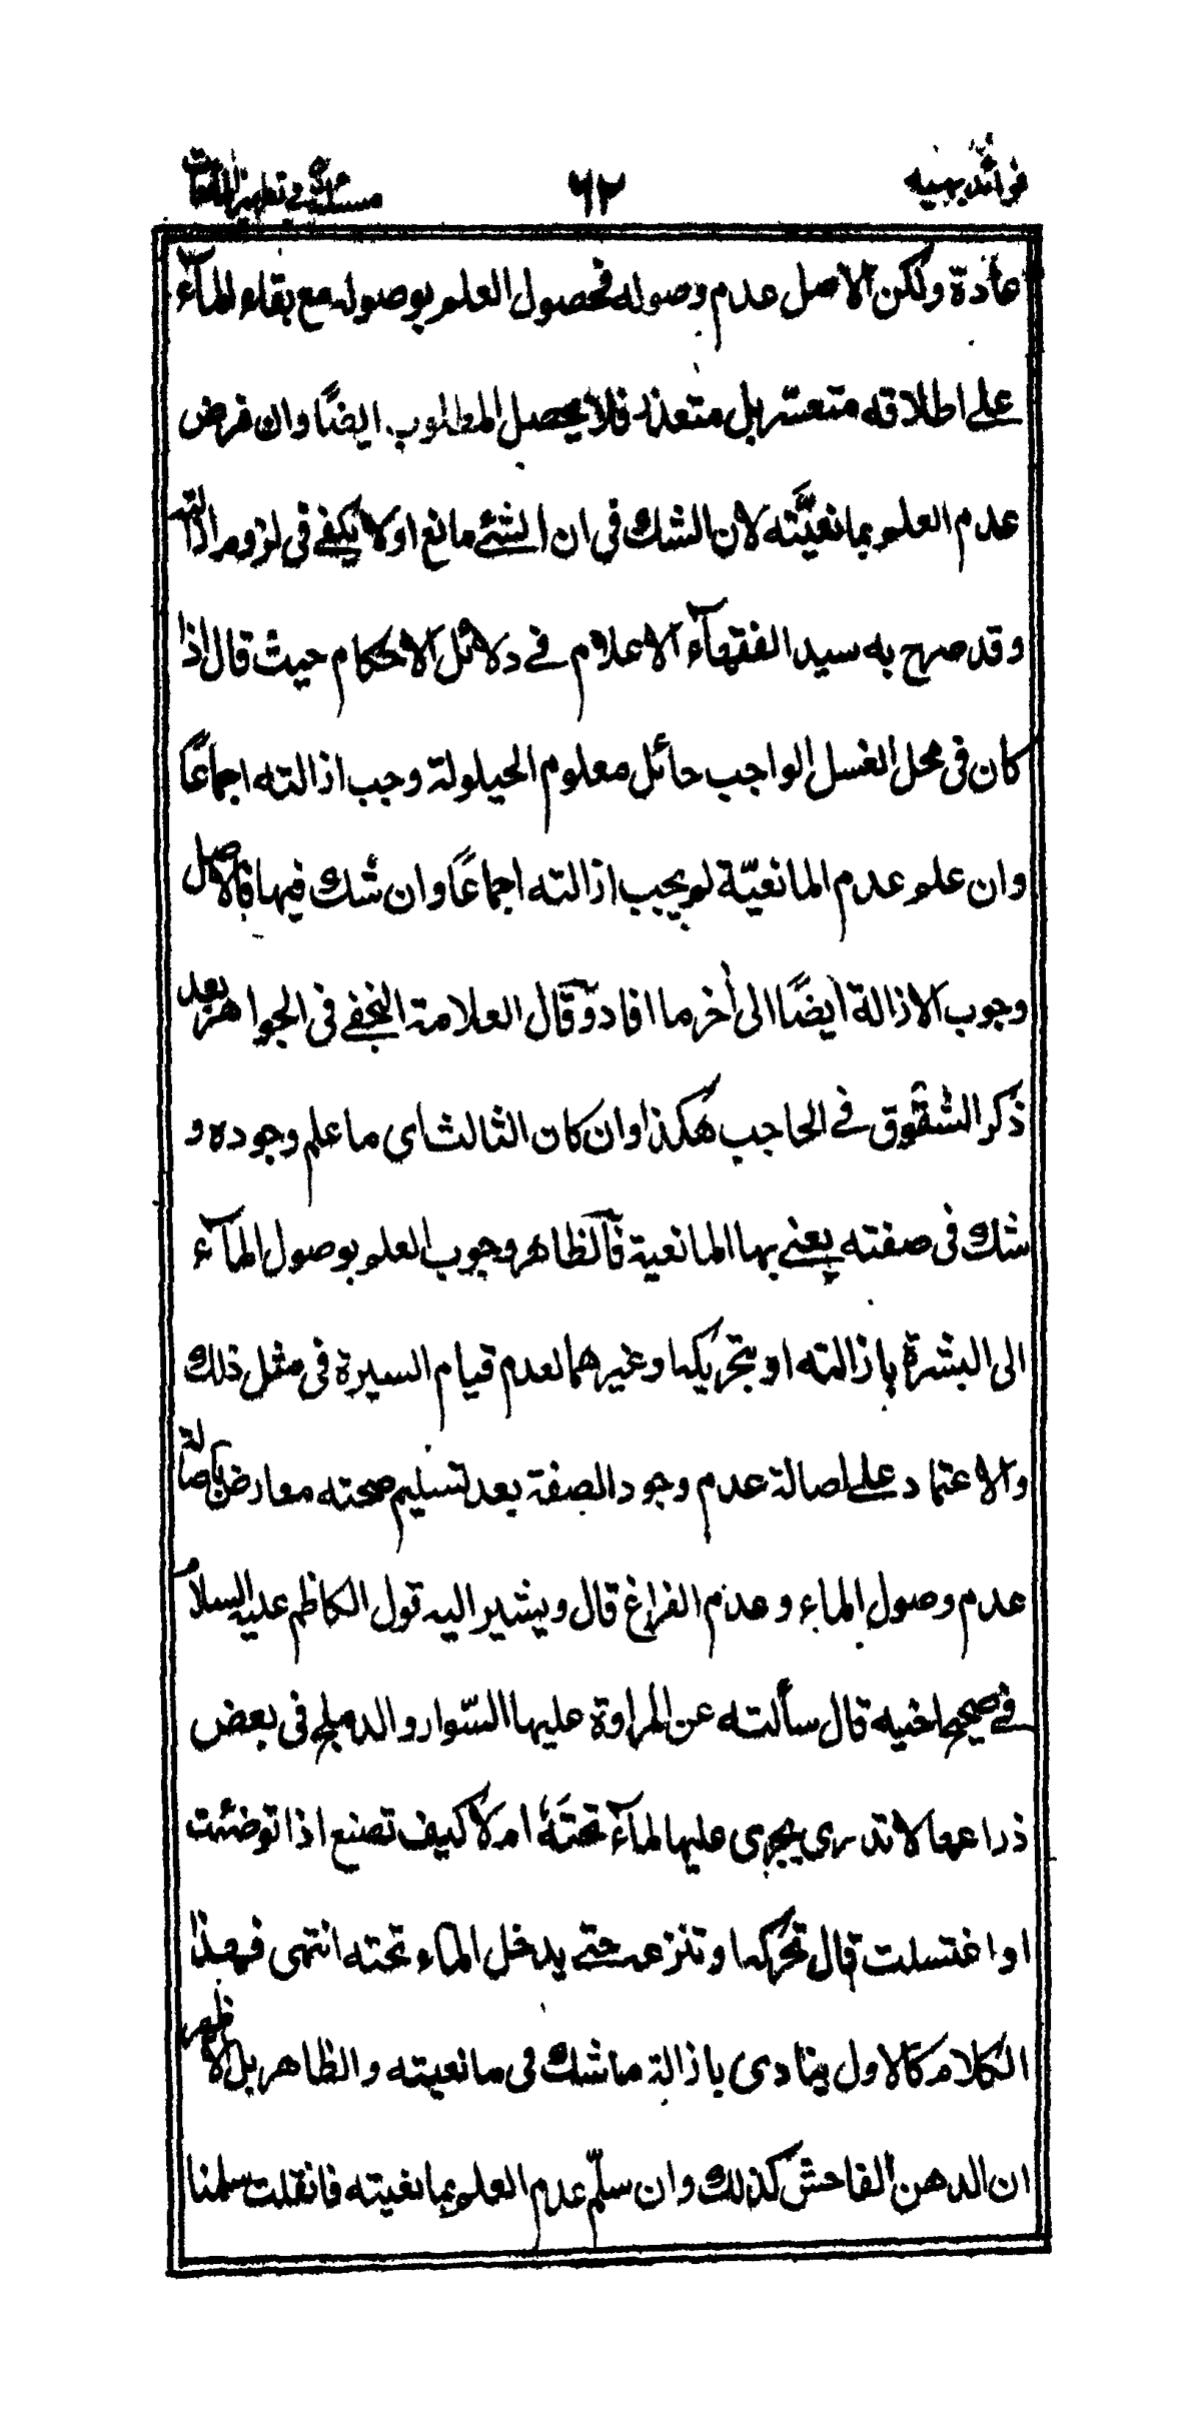 فوائد بهيه ٦٢ مسئلة في تطهير المائعات
عادة ولكن الاصل عدم وصوله فحصول العلم بوصوله مع بقاء المآء
على اطلاقه متعسّر بل متعذر فلا يحصل المطلوب ايضًا وان فرض
عدم العلم بمانعيّته لان الشك في ان الشئ مانع او لا يكفي في لزوم ازالته
وقد صرح به سيد الفقهآء الاعلام في دلائل الاحكام حيث قال اذا
كان في محل الغسل الواجب حائل معلوم الحيلولة وجب ازالته اجماعًا
وان علم عدم المانعيّة لم يجب ازالته اجماعًا وان شك فيها فالاصل
وجوب الازالة ايضًا الى أخر ما افاد وقال العلامة النجفي في الجواهر بعد
ذكر الشقوق في الحاجب هكذا وان كان الثالث اى ما علم وجوده و
شك في صفته يعنى بها المانعية فالظاهر وجوب العلم بوصول المآء
الى البشرة بازالته او بتحريكه او غيرهما لعدم قيام السيرة في مثل ذلك
والاعتماد على اصالة عدم وجود الصفة بعد تسليم صحته معارض باصالة
عدم وصول الماء وعدم الفراغ قال ويشير اليه قول الكاظم عليه السلام
في صحيح اخيه قال سألته عن المراوة عليها السّوار والدملج في بعض
ذراعها لا تدرى يجرى عليها المآء تحته ام لا كيف تصنع اذا توضئت
او اغتسلت قال تحركه او تنزعه حتى يدخل الماء تحته انتهى فهذا
الكلام كالاول ينادى بازالة ما شك في مانعيته والظاهر بل الاظهر
ان الدهن الفاحش كذلك وان سلّم عدم العلم بمانعيته فانقلت سلمنا